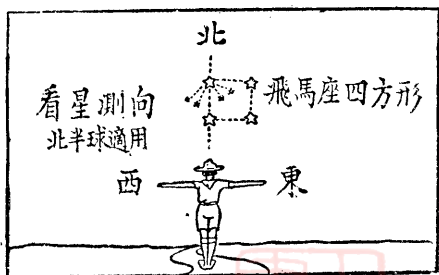 北
看星測向
北半球適用
飛馬座四方形
西
東